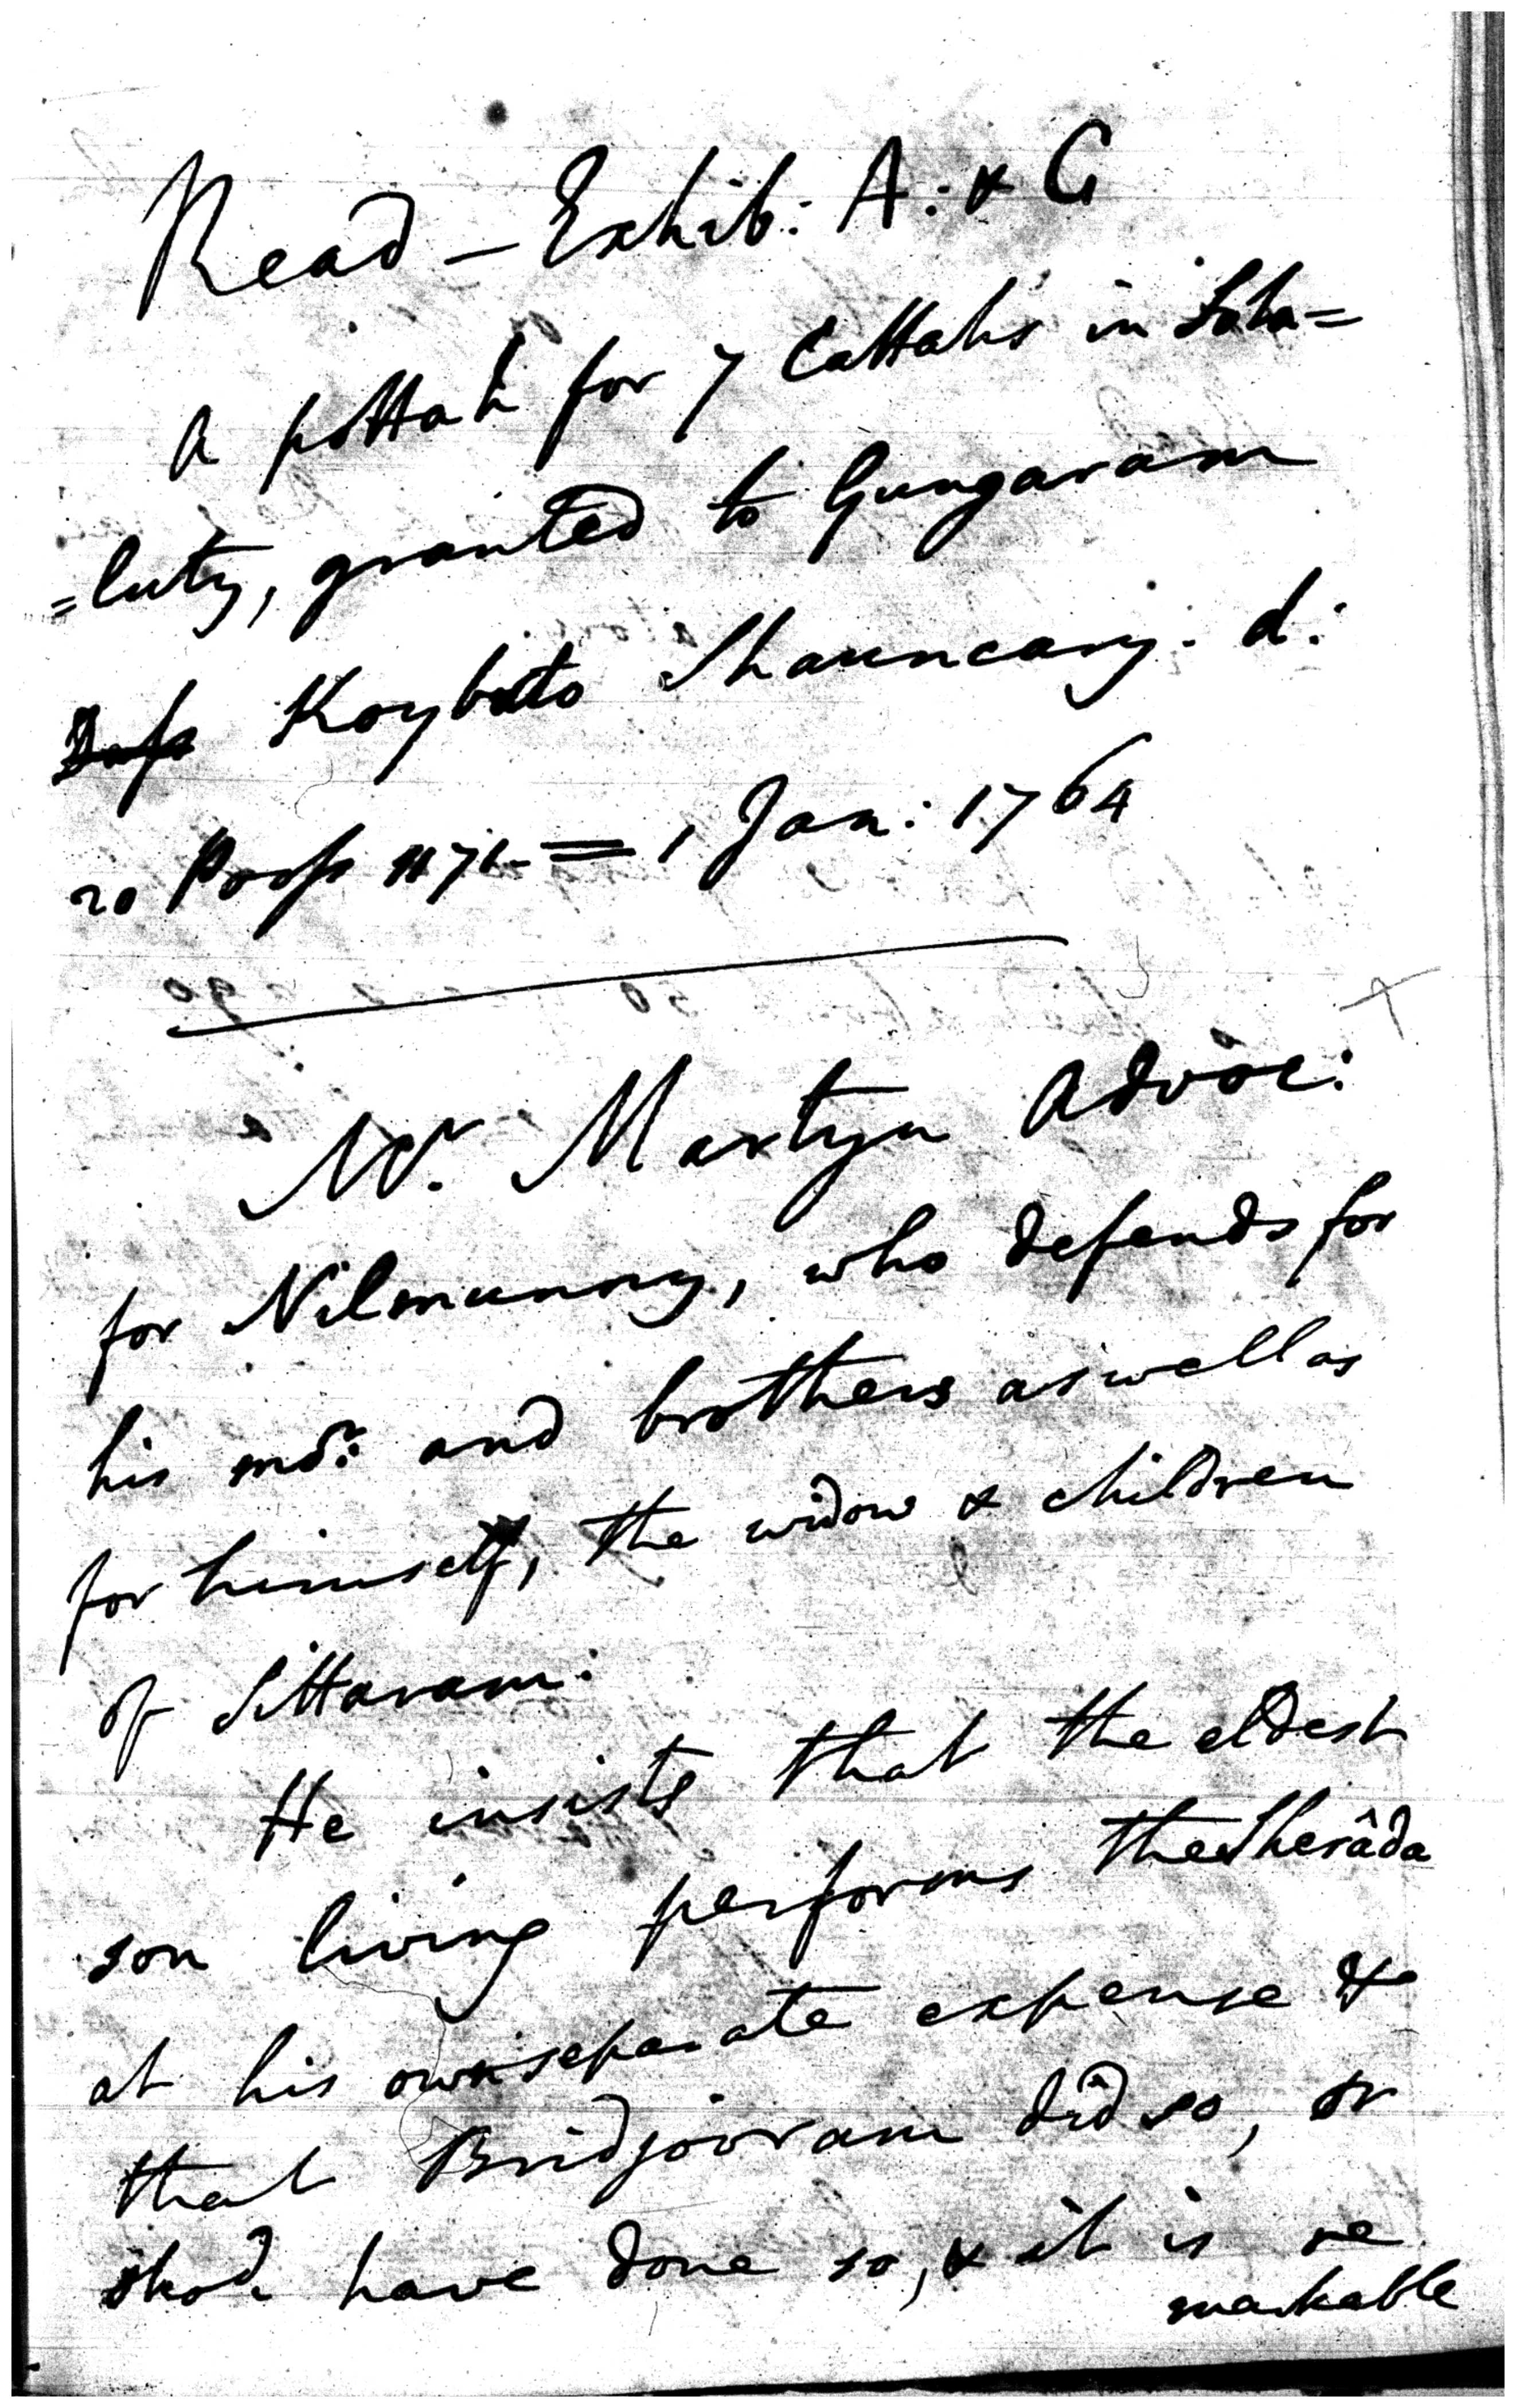 Read – Exhib: A: & G
A pottah for 7 Cattahs in Sata=
=luty, granted to Gungaram
Koybuto Shauncary. d:
20 Poos 1170 = 1, Jan: 1764
Mr. Martyn Advoc:
for Nilmunny, who defends for
his mor: and brothers as well as
for himself, the widow & children
of Sittaram:
He insists that the eldest
son living performs the Sherâda
at his own separate expense &
that Bridjooram did so, or
shod. have done so, & it is re
markable